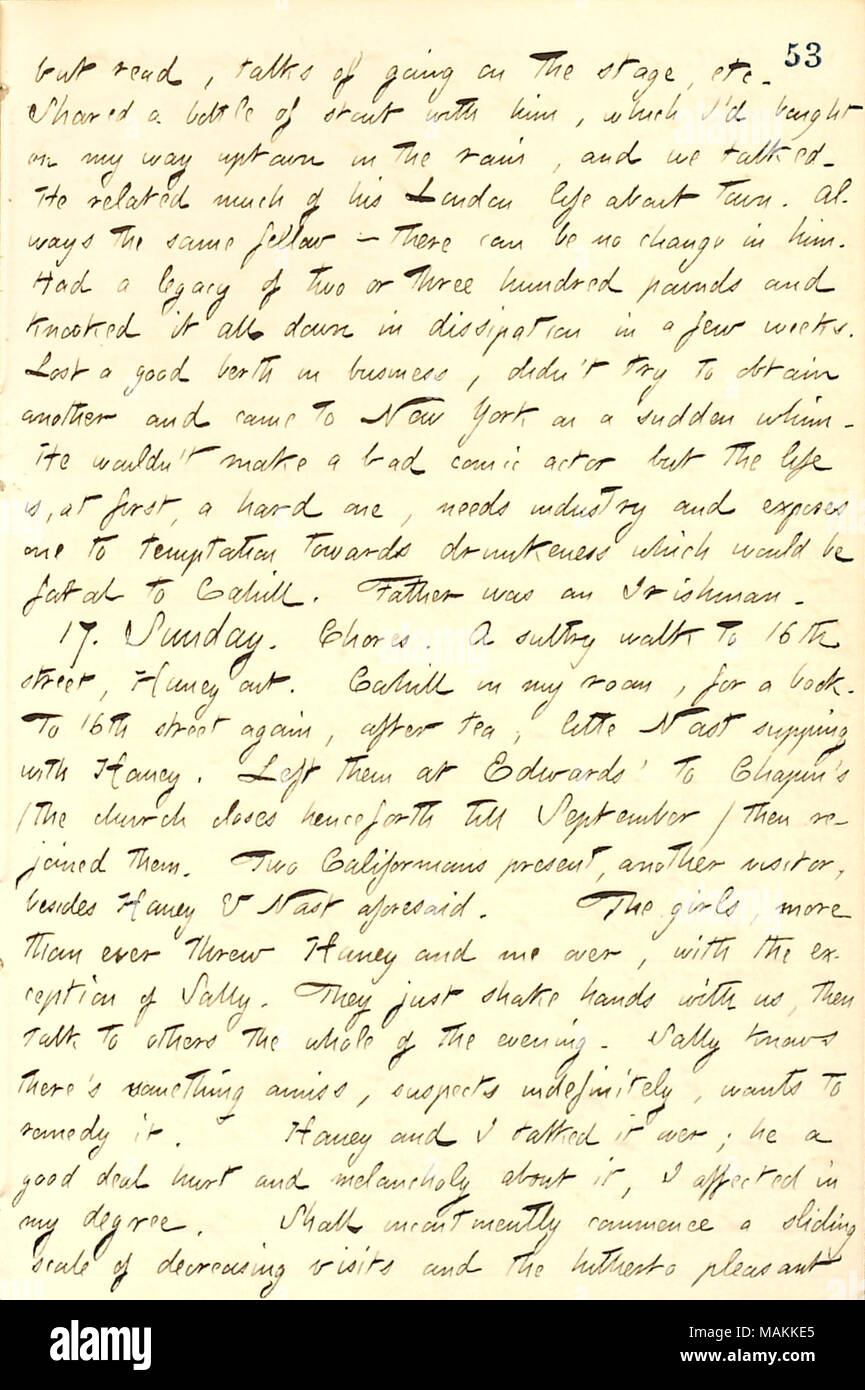 53
but read, talks of going on the stage, etc.
Shared a bottle of stout with him, which I'd bought
on my way uptown in the rain, and we talked.
He related much of his London life about town. Al-
ways the same fellow — there can be no change in him.
Had a legacy of two or three hundred pounds and
knocked it all down in dissipation in a few weeks.
Lost a good berth in business, didn't try to obtain
another and came to New York on a sudden whim.
He wouldn't make a bad comic actor but the life
is, at first, a hard one, needs industry and exposes
one to temptation towards drunkeness which would be
fatal to Cahill. Father was an Irishman.
17. Sunday. Chores. A sultry walk to 16th
street, Haney out. Cahill in my room, for a book.
To 16th street again, after tea, little Nast supping
with Haney. Left them at Edwards' to Chapin's
(the church closes henceforth till September) then re-
joined them. Two Californians present, another visitor,
besides Haney & Nast aforesaid. The girls, more
than ever threw Haney and me over, with the ex-
ception of Sally. They just shake hands with us, then
talk to others the whole of the evening. Sally knows
there's something amiss, suspects indefinitely, wants to
remedy it. Haney and I talked it over; he a
good deal hurt and melancholy about it, I affected in
my degree. Shall incontinently commence a sliding
scale of decreasing visits and the hitherto pleasant
alamy
Image ID: MAKKE5
www.alamy.com